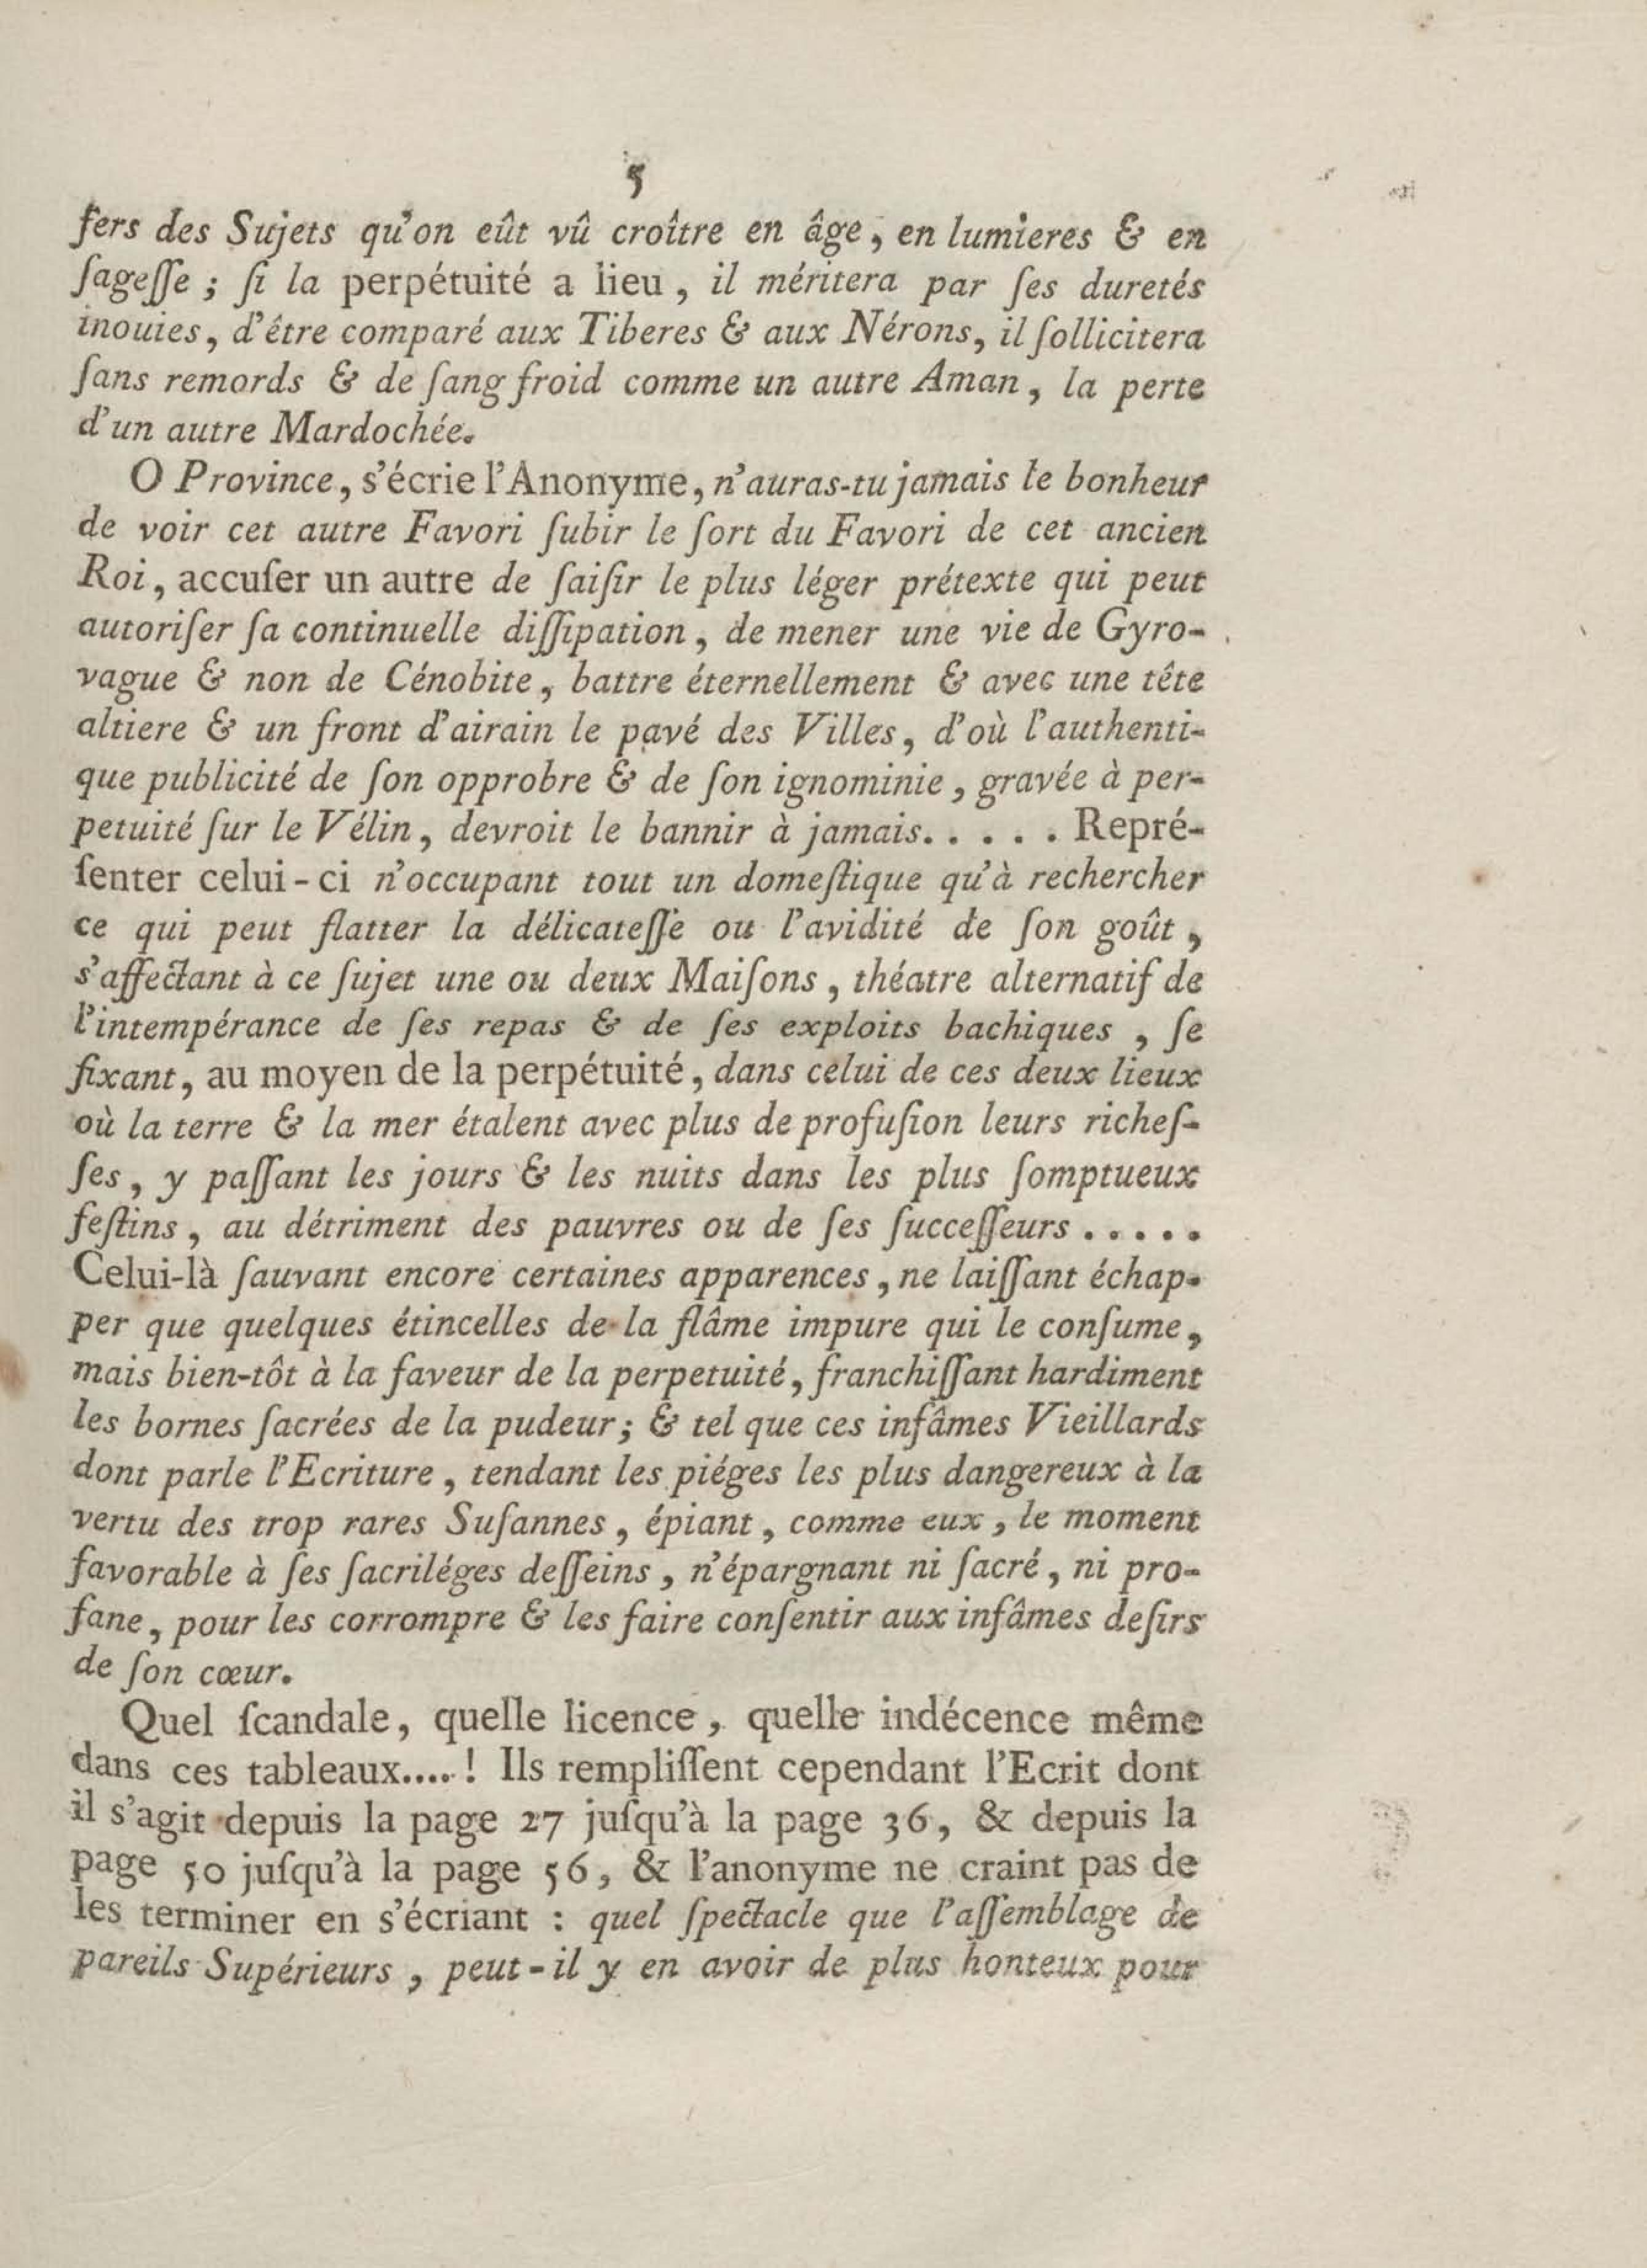 5
fers des Sujets qu'on eût vû croître en âge, en lumieres & en
ſageſſe ; ſi la perpétuité a lieu , il méritera par ſes duretés
inouies, d'être comparé aux Tiberes & aux Nérons, il ſollicitera
ſans remords & de ſang froid comme un autre Aman , la perte
d'un autre Mardochée.
O Province, s'écrie l'Anonyme, n'auras-tu jamais le bonheur
de voir cet autre Favori ſubir le ſort du Favori de cet ancien
Roi, accuſer un autre de ſaiſir le plus léger prétexte qui peut
autoriſer ſa continuelle diſſipation , de mener une vie de Gyro-
vague & non de Cénobite , battre éternellement & avec une tête
altiere & un front d'airain le pavé des Villes, d'où l'authenti-
que publicité de ſon opprobre & de ſon ignominie , gravée à per-
petuité ſur le Vélin, devroit le bannir à jamais. . . . . Repré-
ſenter celui-ci n'occupant tout un domeſtique qu'à rechercher
ce qui peut flatter la délicateſſe ou l'avidité de ſon goût ,
s'affectant à ce ſujet une ou deux Maiſons , théatre alternatif de
l'intempérance de ſes repas & de ſes exploits bachiques , ſe
fixant, au moyen de la perpétuité, dans celui de ces deux lieux
où la terre & la mer étalent avec plus de profuſion leurs richeſ-
ſes , y paſſant les jours & les nuits dans les plus ſomptueux
feſtins , au détriment des pauvres ou de ſes ſucceſſeurs . . . . .
Celui-là ſauvant encore certaines apparences , ne laiſſant échap-
per que quelques étincelles de la flâme impure qui le conſume,
mais bien-tôt à la faveur de la perpetuité, franchiſſant hardiment
les bornes ſacrées de la pudeur; & tel que ces infâmes Vieillards
dont parle l'Ecriture , tendant les piéges les plus dangereux à la
vertu des trop rares Suſannes , épiant , comme eux , le moment
favorable à ſes ſacriléges deſſeins , n'épargnant ni ſacré , ni pro-
fane, pour les corrompre & les faire conſentir aux infâmes deſirs
de ſon cœur.
Quel ſcandale, quelle licence , quelle indécence même
dans ces tableaux..... ! Ils rempliſſent cependant l'Ecrit dont
il s'agit depuis la page 27 juſqu'à la page 36, & depuis la
page 50 juſqu'à la page 56, & l'anonyme ne craint pas de
les terminer en s'écriant : quel ſpectacle que l'aſſemblage de
pareils Supérieurs , peut-il y en avoir de plus honteux pour